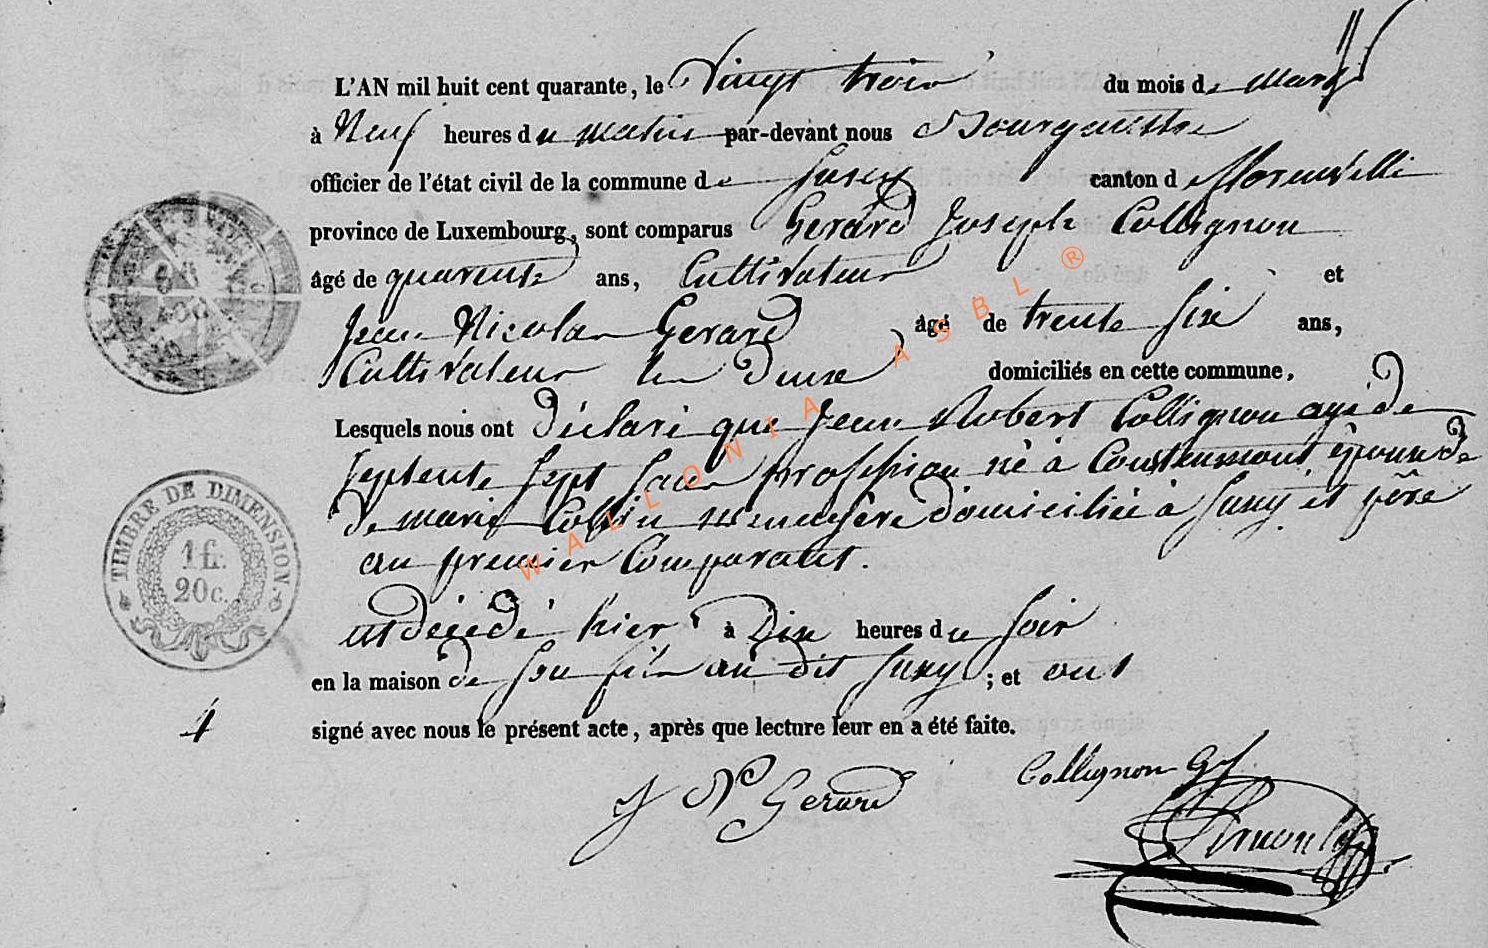 L'AN mil huit cent quarante, le Vingt trois du mois de mars
à Neuf heures du matin par-devant nous Bourgmestre
officier de l'état civil de la commune de Suxy canton de florenville
province de Luxembourg, sont comparus Gerard Joseph Collignon
âgé de quarente ans, Cultivateur et
Jean Nicolas Gerard âgé de trente six ans,
Cultivateur les deux domiciliés en cette commune,
Lesquels nous ont déclaré que Jean Robert Collignon agé de
septente sept sans profession né à époux de
de marie Collin menagère domiciliée à Suxy et père
au premier Comparant.
est décédé hier à Dix heures du soir
en la maison de son fils au dit Suxy ; et ont
signé avec nous le présent acte, après que lecture leur en a été faite.
4
J N Gerard
Collignon G J
Arnould
TIMBRE DE DIMENSION
1 fr.
20 c.
WALLONIA ASBL ®